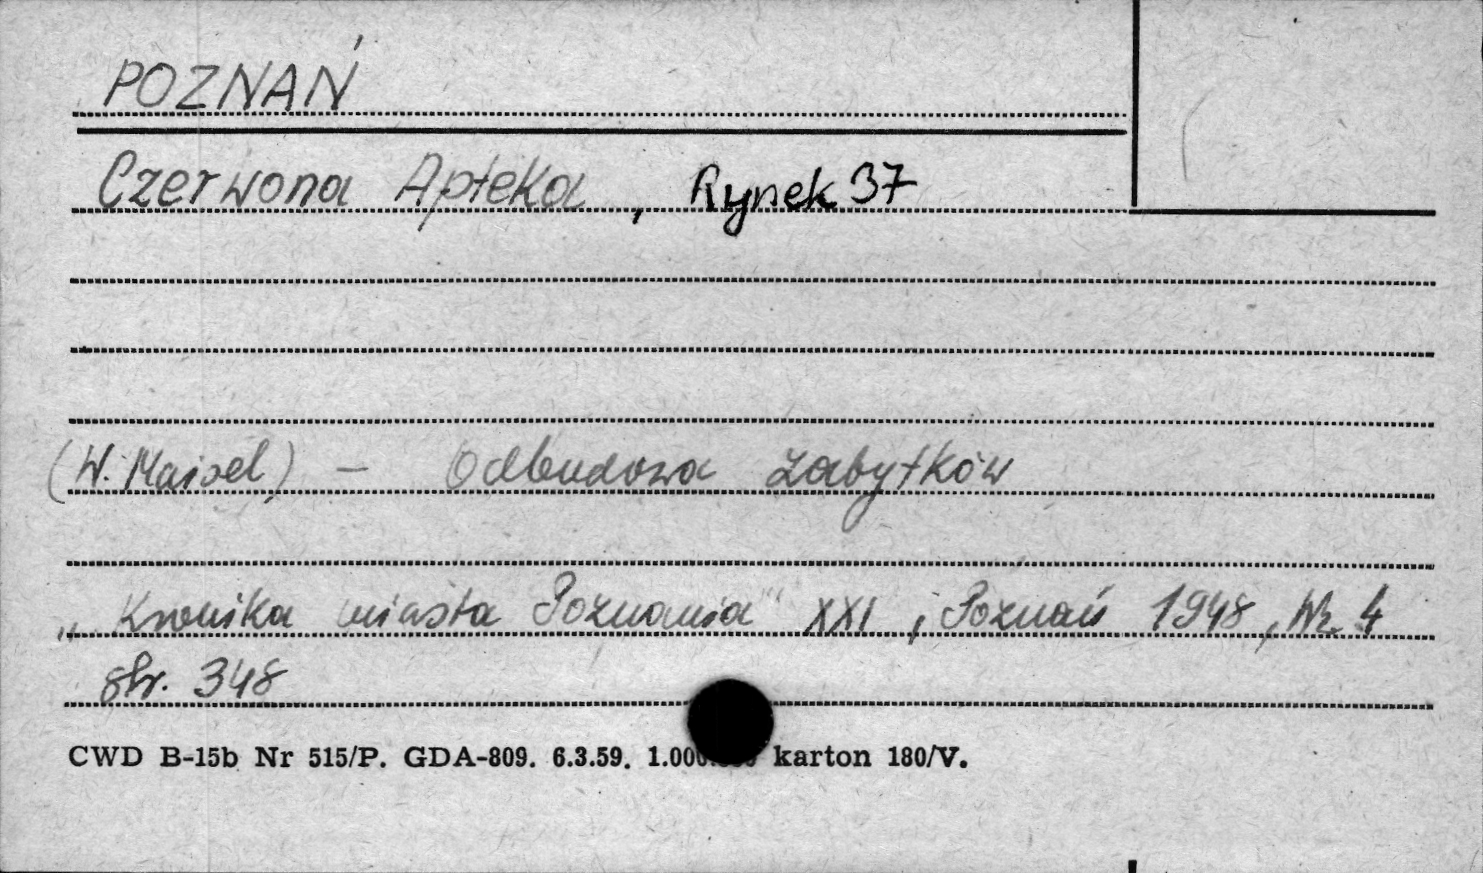 POZNAŃ
Czerwona Apteka, Rynek 37
(W. Maisel) – Odbudowa zabytków
„Kronika miasta Poznania" XXI, Poznań 1948, Nr 4
str. 348
CWD B-15b Nr 515/P. GDA-809. 6.3.59. karton 180/V.